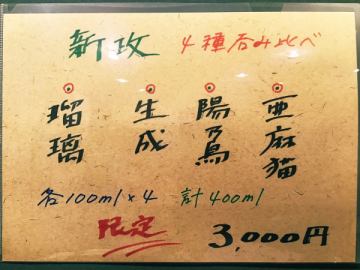 新攻 4種呑み比べ
亜麻猫
陽乃鳥
生成
瑠璃
各100ml×4 計400ml
限定 3,000円